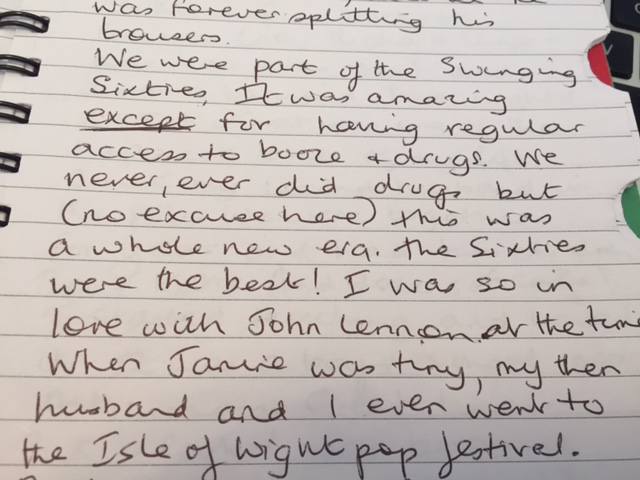 was forever splitting his
trousers.
We were part of the Swinging
Sixties, It was amazing
except for having regular
access to booze & drugs. We
never, ever did drugs but
(no excuse here) this was
a whole new era. The Sixties
were the best! I was so in
love with John Lennon at the time
When Jamie was tiny, my then
husband and I even went to
the Isle of Wight pop festival.